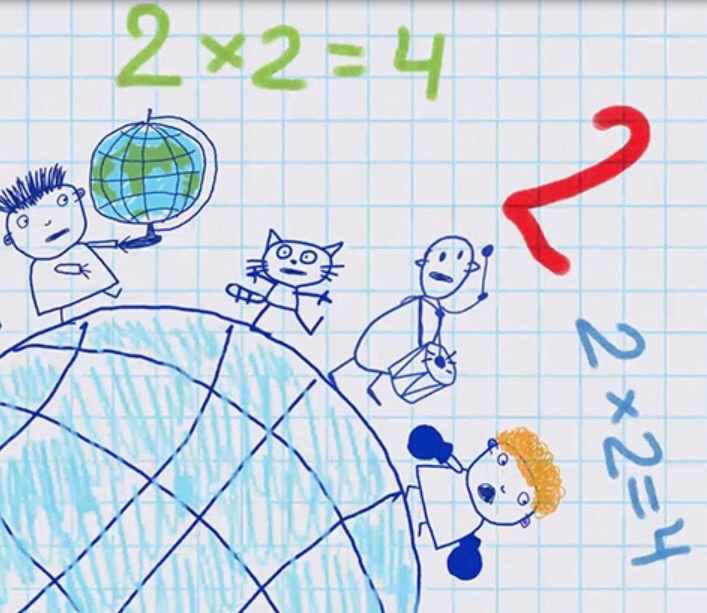 2×2=4
2
2×2=4